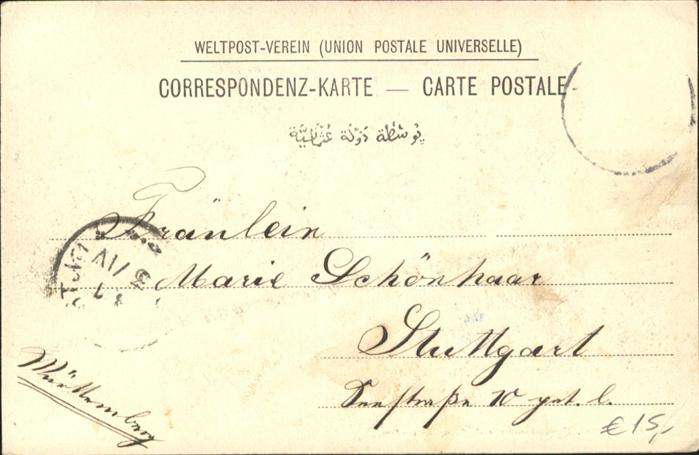 WELTPOST-VEREIN (UNION POSTALE UNIVERSELLE)
CORRESPONDENZ-KARTE — CARTE POSTALE
پوسطهٔ دولت عثمانیه
Fräulein
Marie Schönhaar
Stuttgart
Seestraße 10
Württemberg
€ 15,-